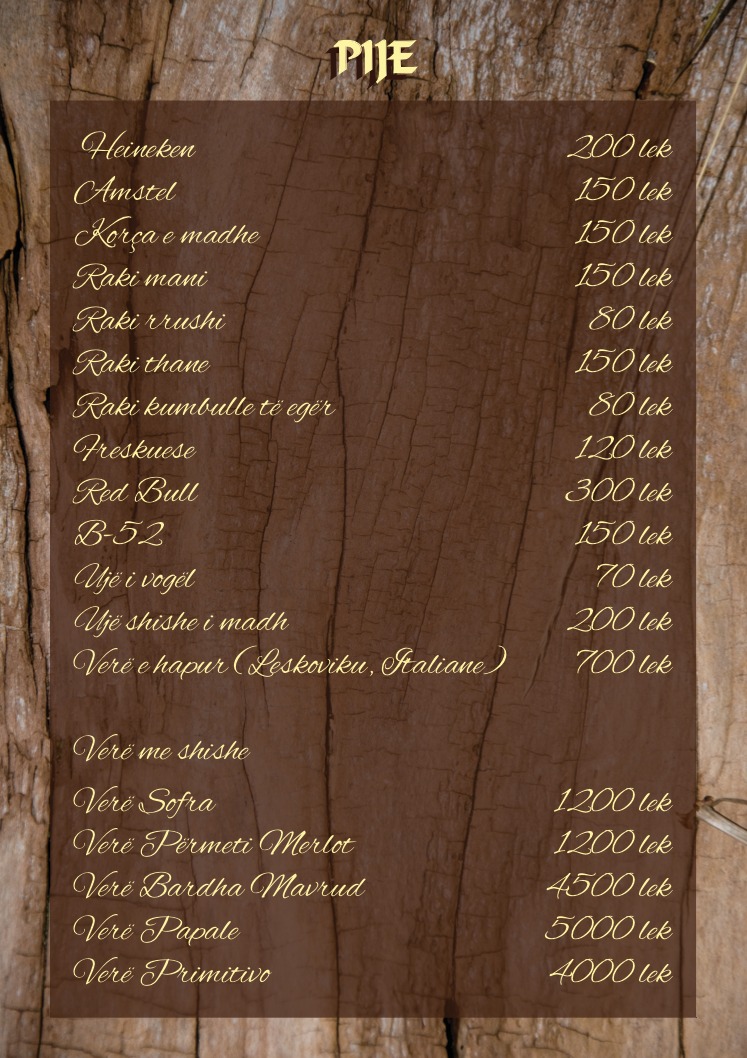 PIJE
Heineken 200 lek
Amstel 150 lek
Korça e madhe 150 lek
Raki mani 150 lek
Raki rrushi 80 lek
Raki thane 150 lek
Raki kumbulle të egër 80 lek
Freskuese 120 lek
Red Bull 300 lek
B-52 150 lek
Ujë i vogël 70 lek
Ujë shishe i madh 200 lek
Verë e hapur (Leskoviku, Italiane) 700 lek
Verë me shishe
Verë Sofra 1200 lek
Verë Përmeti Merlot 1200 lek
Verë Bardha Mavrud 4500 lek
Verë Papale 5000 lek
Verë Primitivo 4000 lek